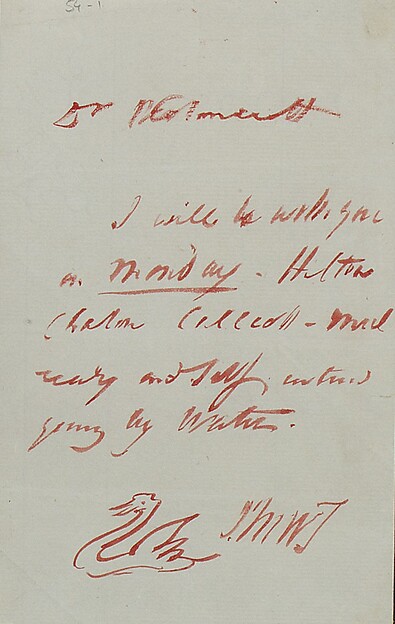 Dr
I will be with you
on Monday - Hilton
Chalon Callcott - Mul
ready and Self intend
going by Water.
JMWT